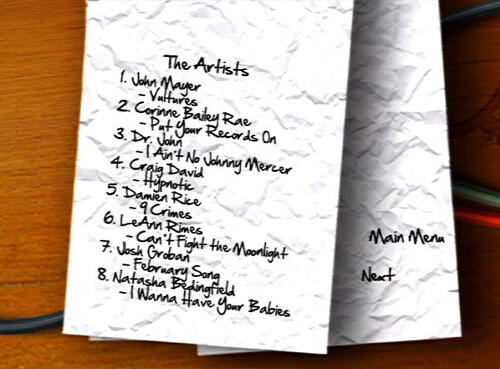 The Artists
1. John Mayer
- Vultures
2. Corinne Bailey Rae
- Put Your Records On
3. Dr. John
- I Ain't No Johnny Mercer
4. Craig David
- Hypnotic
5. Damien Rice
- 9 Crimes
6. LeAnn Rimes
- Can't Fight the Moonlight
7. Josh Groban
- February Song
8. Natasha Bedingfield
- I Wanna Have Your Babies
Main Menu
Next